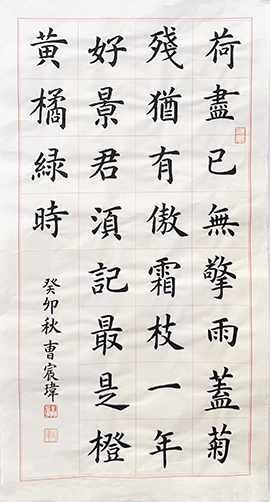 荷盡已無擎雨蓋菊
殘猶有傲霜枝一年
好景君須記最是橙
黃橘綠時
癸卯秋曹宸瑋